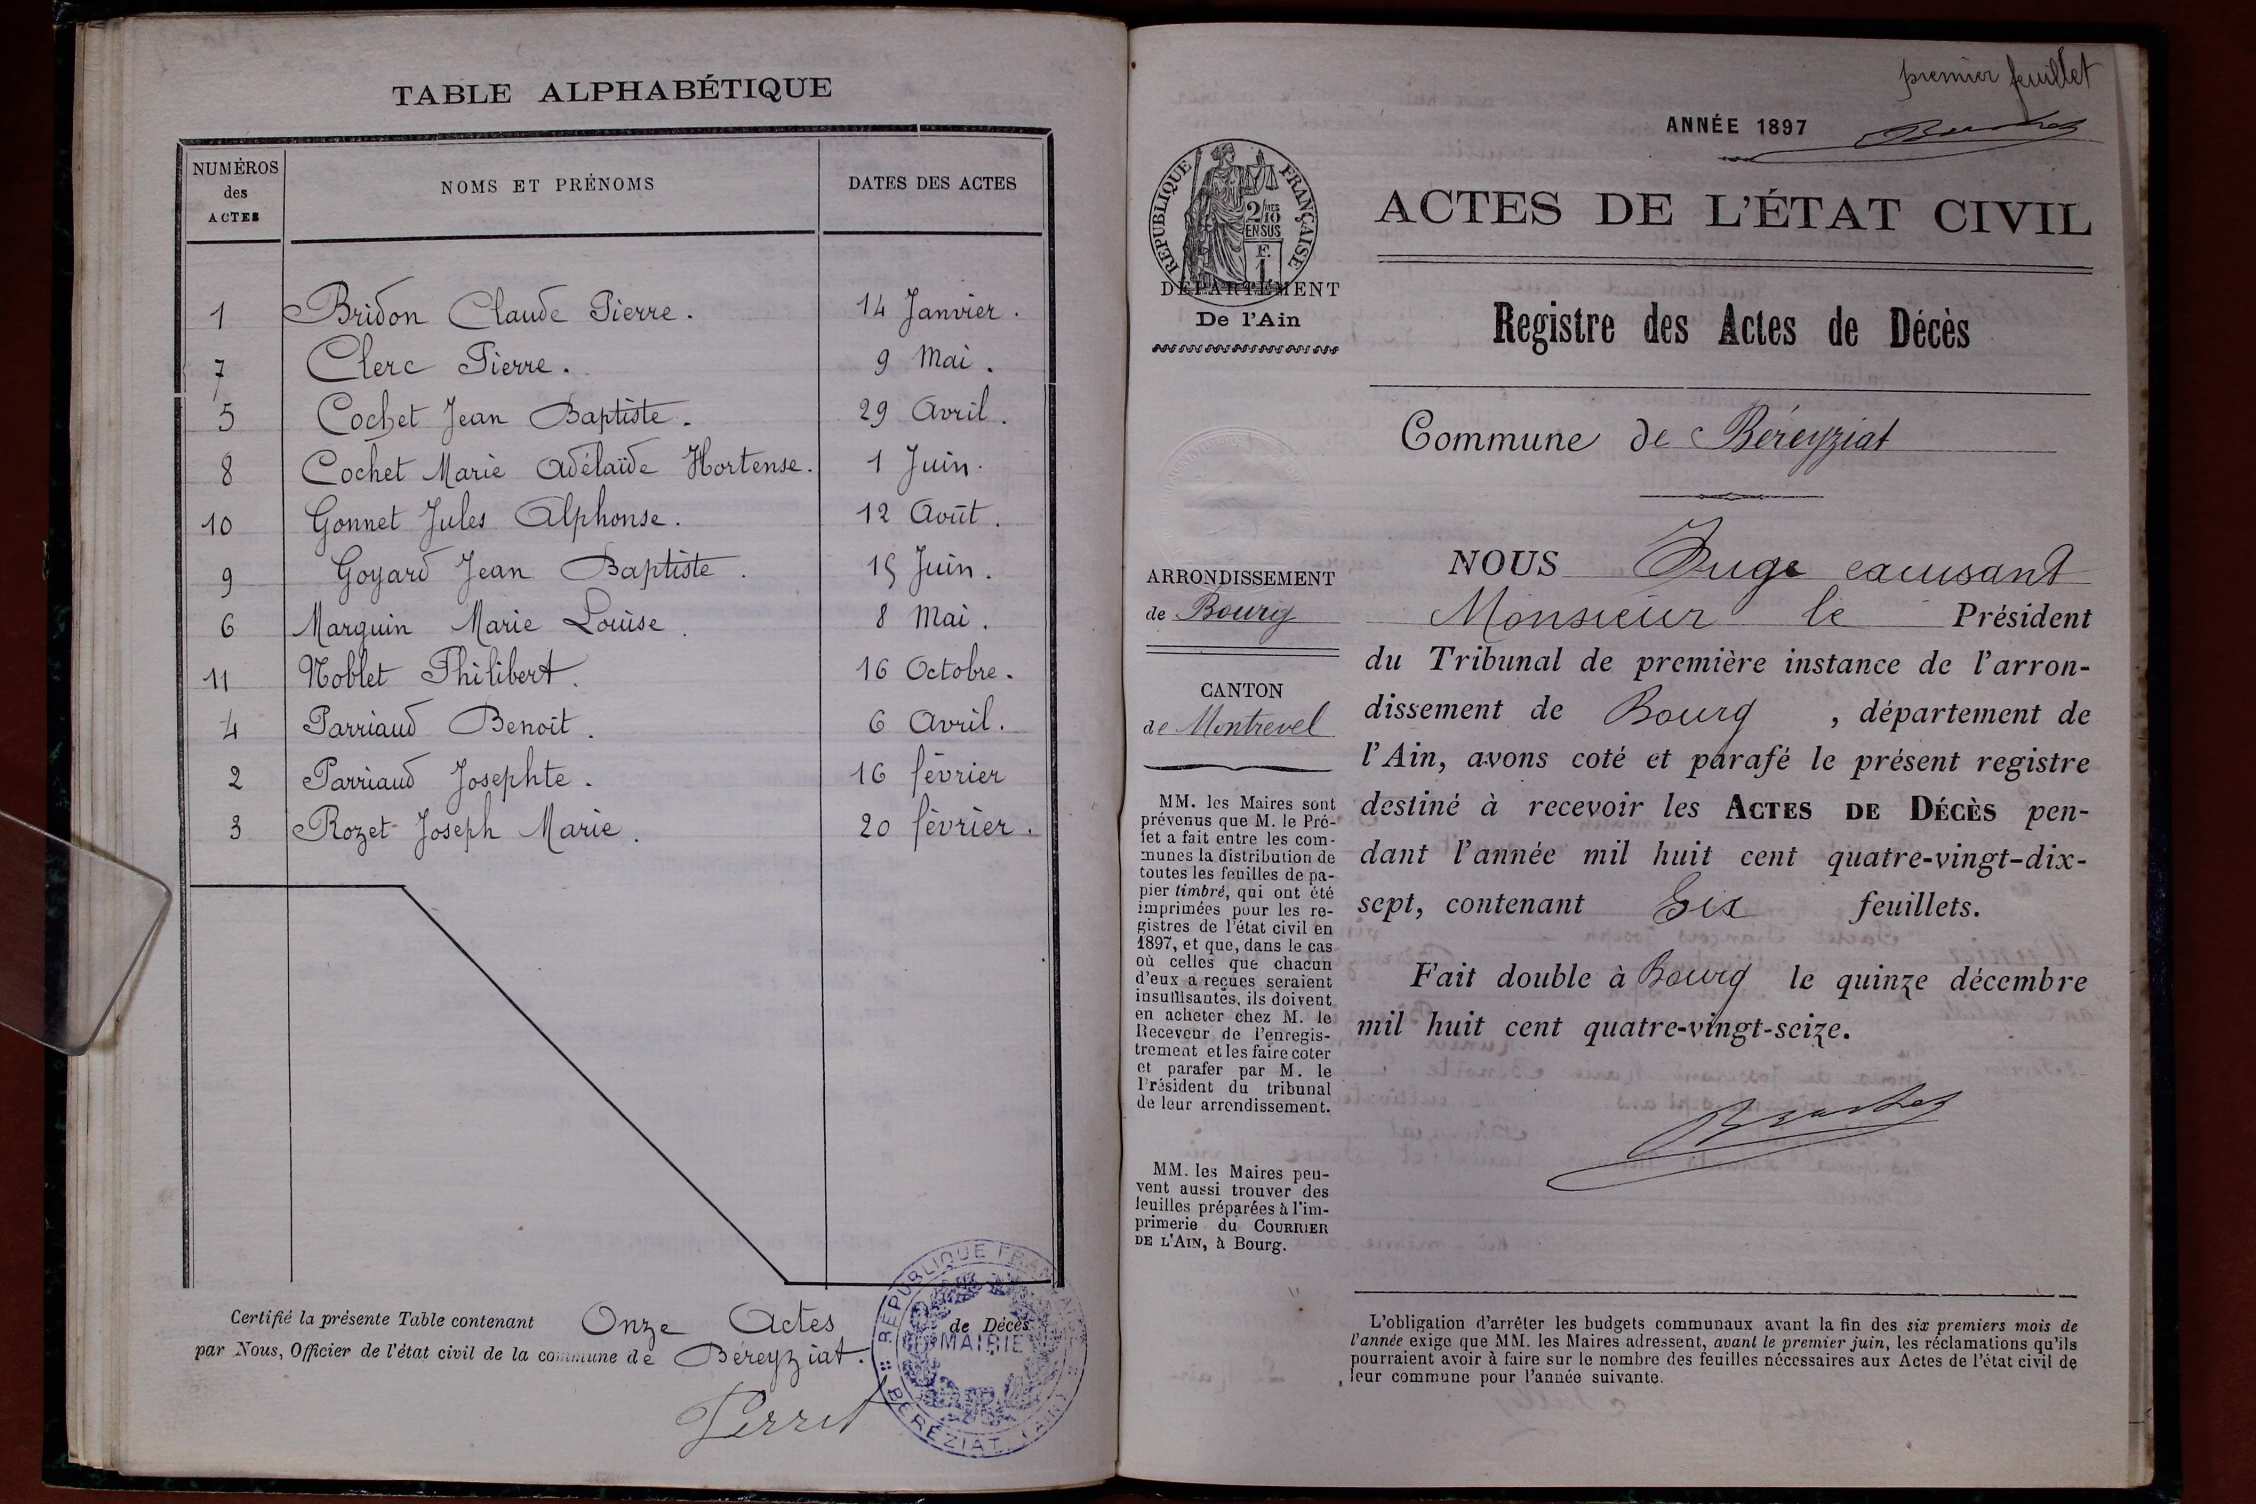 TABLE ALPHABÉTIQUE
NUMÉROS des ACTES
NOMS ET PRÉNOMS
DATES DES ACTES
1 Bridon Claude Pierre. 14 Janvier.
7 Clerc Pierre. 9 Mai.
5 Cochet Jean Baptiste. 29 Avril.
8 Cochet Marie Adélaïde Hortense. 1 Juin.
10 Gonnet Jules Alphonse. 12 Août.
9 Goyard Jean Baptiste. 15 Juin.
6 Marguin Marie Louise. 8 Mai.
11 Noblet Philibert. 16 Octobre.
4 Parriaud Benoît. 6 Avril.
2 Parriaud Josephte. 16 février
3 Rozet Joseph Marie. 20 février.
Certifié la présente Table contenant Onze Actes de Décès
par Nous, Officier de l'état civil de la commune de Bereyziat.
Perret
RÉPUBLIQUE FRANÇAISE
MAIRIE
BÉRÉZIAT (AIN)
premier feuillet
ANNÉE 1897
RÉPUBLIQUE FRANÇAISE
2/10 MES
EN SUS
F.
1
DÉPARTEMENT
De l'Ain
ACTES DE L'ÉTAT CIVIL
Registre des Actes de Décès
Commune de Béreyziat
ARRONDISSEMENT
de Bourg
CANTON
de Montrevel
MM. les Maires sont
prévenus que M. le Pré-
fet a fait entre les com-
munes la distribution de
toutes les feuilles de pa-
pier timbré, qui ont été
imprimées pour les re-
gistres de l'état civil en
1897, et que, dans le cas
où celles que chacun
d'eux a reçues seraient
insuffisantes, ils doivent
en acheter chez M. le
Receveur de l'enregis-
trement et les faire coter
et parafer par M. le
Président du tribunal
de leur arrondissement.
MM. les Maires peu-
vent aussi trouver des
feuilles préparées à l'im-
primerie du COURRIER
DE L'AIN, à Bourg.
NOUS Juge excusant
Monsieur le Président
du Tribunal de première instance de l'arron-
dissement de Bourg, département de
l'Ain, avons coté et parafé le présent registre
destiné à recevoir les ACTES DE DÉCÈS pen-
dant l'année mil huit cent quatre-vingt-dix-
sept, contenant Six feuillets.
Fait double à Bourg le quinze décembre
mil huit cent quatre-vingt-seize.
L'obligation d'arrêter les budgets communaux avant la fin des six premiers mois de
l'année exige que MM. les Maires adressent, avant le premier juin, les réclamations qu'ils
pourraient avoir à faire sur le nombre des feuilles nécessaires aux Actes de l'état civil de
leur commune pour l'année suivante.